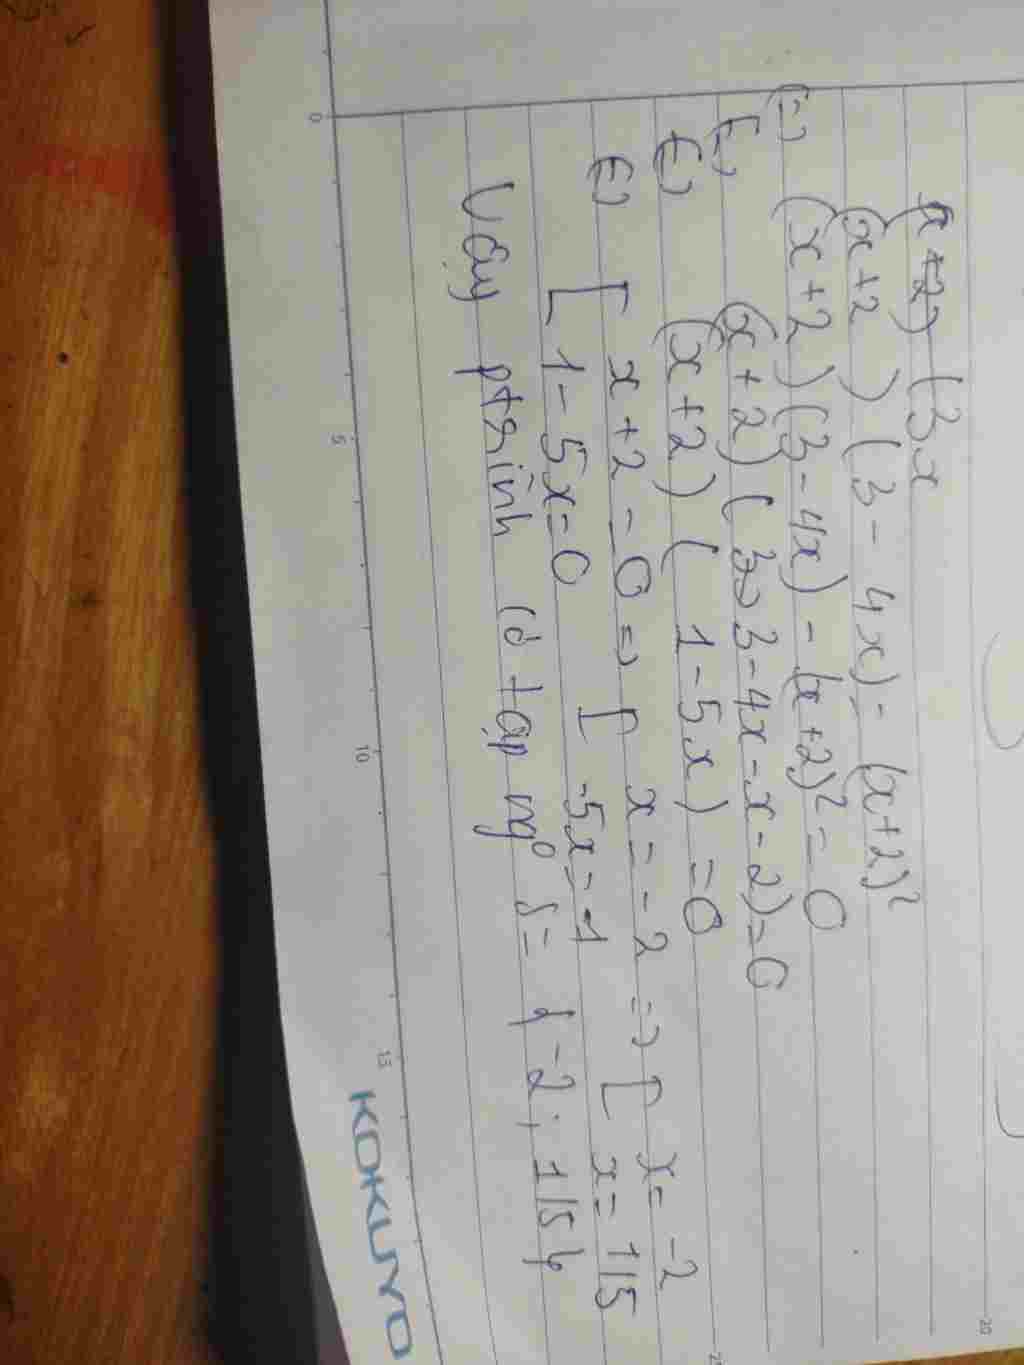 (x+2) (3x
(x+2) (3-4x) = (x+2)²
(=) (x+2)(3-4x) - (x+2)² = 0
(=) (x+2)(3-4x-x-2)=0
(=) (x+2) (1-5x) =0
(=) [ x+2=0 => [ x=-2 => [ x=-2
[ 1-5x=0 [ -5x=-1 [ x=1/5
Vậy ptrình có tập ngº S= {-2; 1/5}
0 5 10 15 20
KOKUYO